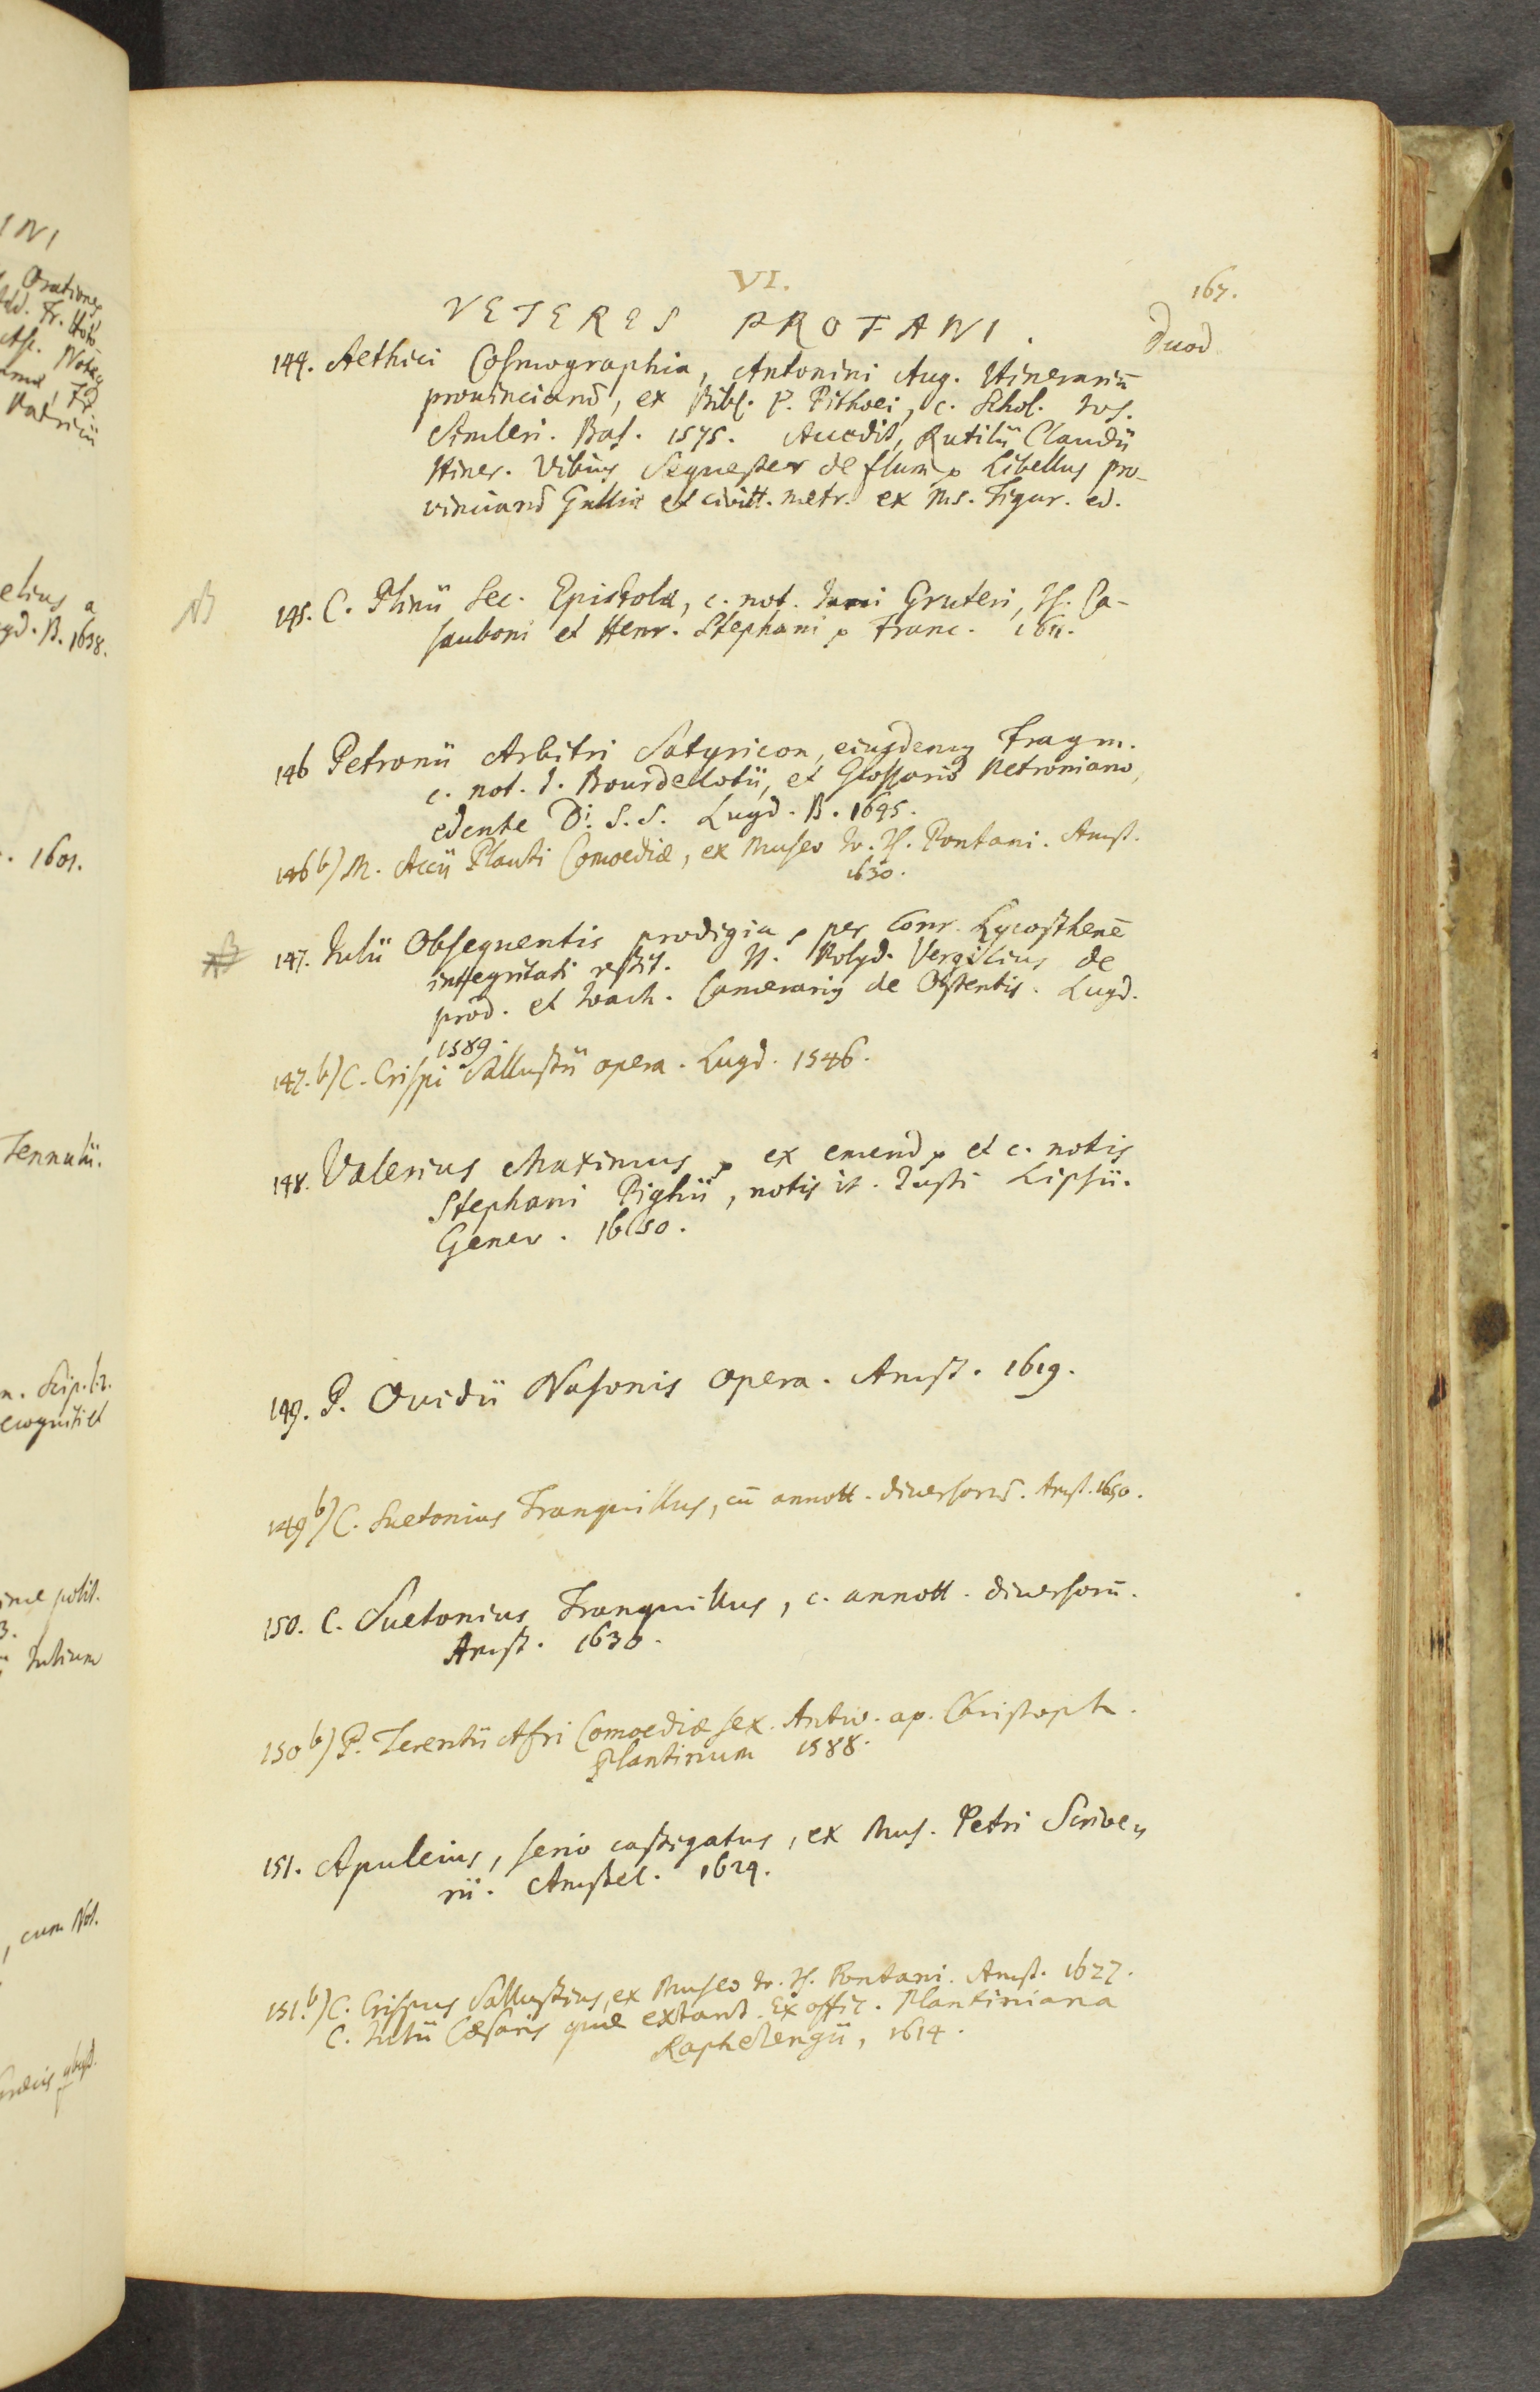 VI.
167.
VETERES PROFANI.
Duod
144. Aethici Cosmographia, Antonini Aug. Itinerariū
prouinciarū, ex Bibl. P. Pithoei, c. Schol. Ios.
Simleri. Bas. 1575. Accedit, Rutilii Claudii
Itiner. Vibius Sequester de flum. Libellus pro-
vinciarū Galliæ et civitt. metr. ex ms. Figur. ed.
NB
145. C. Plinii Sec. Epistolæ, c. not. Jani Gruteri, Is. Ca-
sauboni et Henr. Stephani Franc. 1611.
146 Petronii Arbitri Satyricon, eiusdemq Fragm.
c. not. I. Bourdelotii, et Glossario Petroniano,
edente D: S. S. Lugd. B. 1645.
146 b) M. Accii Plauti Comoediæ, ex Museo Io. Is. Pontani. Amst.
1630.
NB
147. Iulii Obsequentis prodigia, per Conr. Lycosthenē
integritati restit. It. Polyd. Vergilius de
prod. et Ioach. Camerariq de Ostentis. Lugd.
1589.
147. b) C. Crispi Sallustii opera. Lugd. 1546.
148. Valerius Maximus, ex emend et c. notis
Stephani Pighii, notis it. Justi Lipsii.
Genev. 1650.
149. P. Ouidii Nasonis opera. Amst. 1619.
149 b) C. Suetonius Tranquillus, cū annott. diuersorū. Amst. 1650.
150. C. Suetonius Tranquillus, c. annott. diuersorū.
Amst. 1630.
150 b) P. Terentii Afri Comoediæ sex. Antw. ap. Christoph.
Plantinum 1588.
151. Apuleius, serio castigatus, ex Mus. Petri Scrive-
rii. Amstel. 1624.
151. b) C. Crispus Sallustius, ex Museo Io. Is. Pontani. Amst. 1627.
C. Iulii Cæsaris quæ extant. Ex offic. Plantiniana
Raphelengii, 1614.